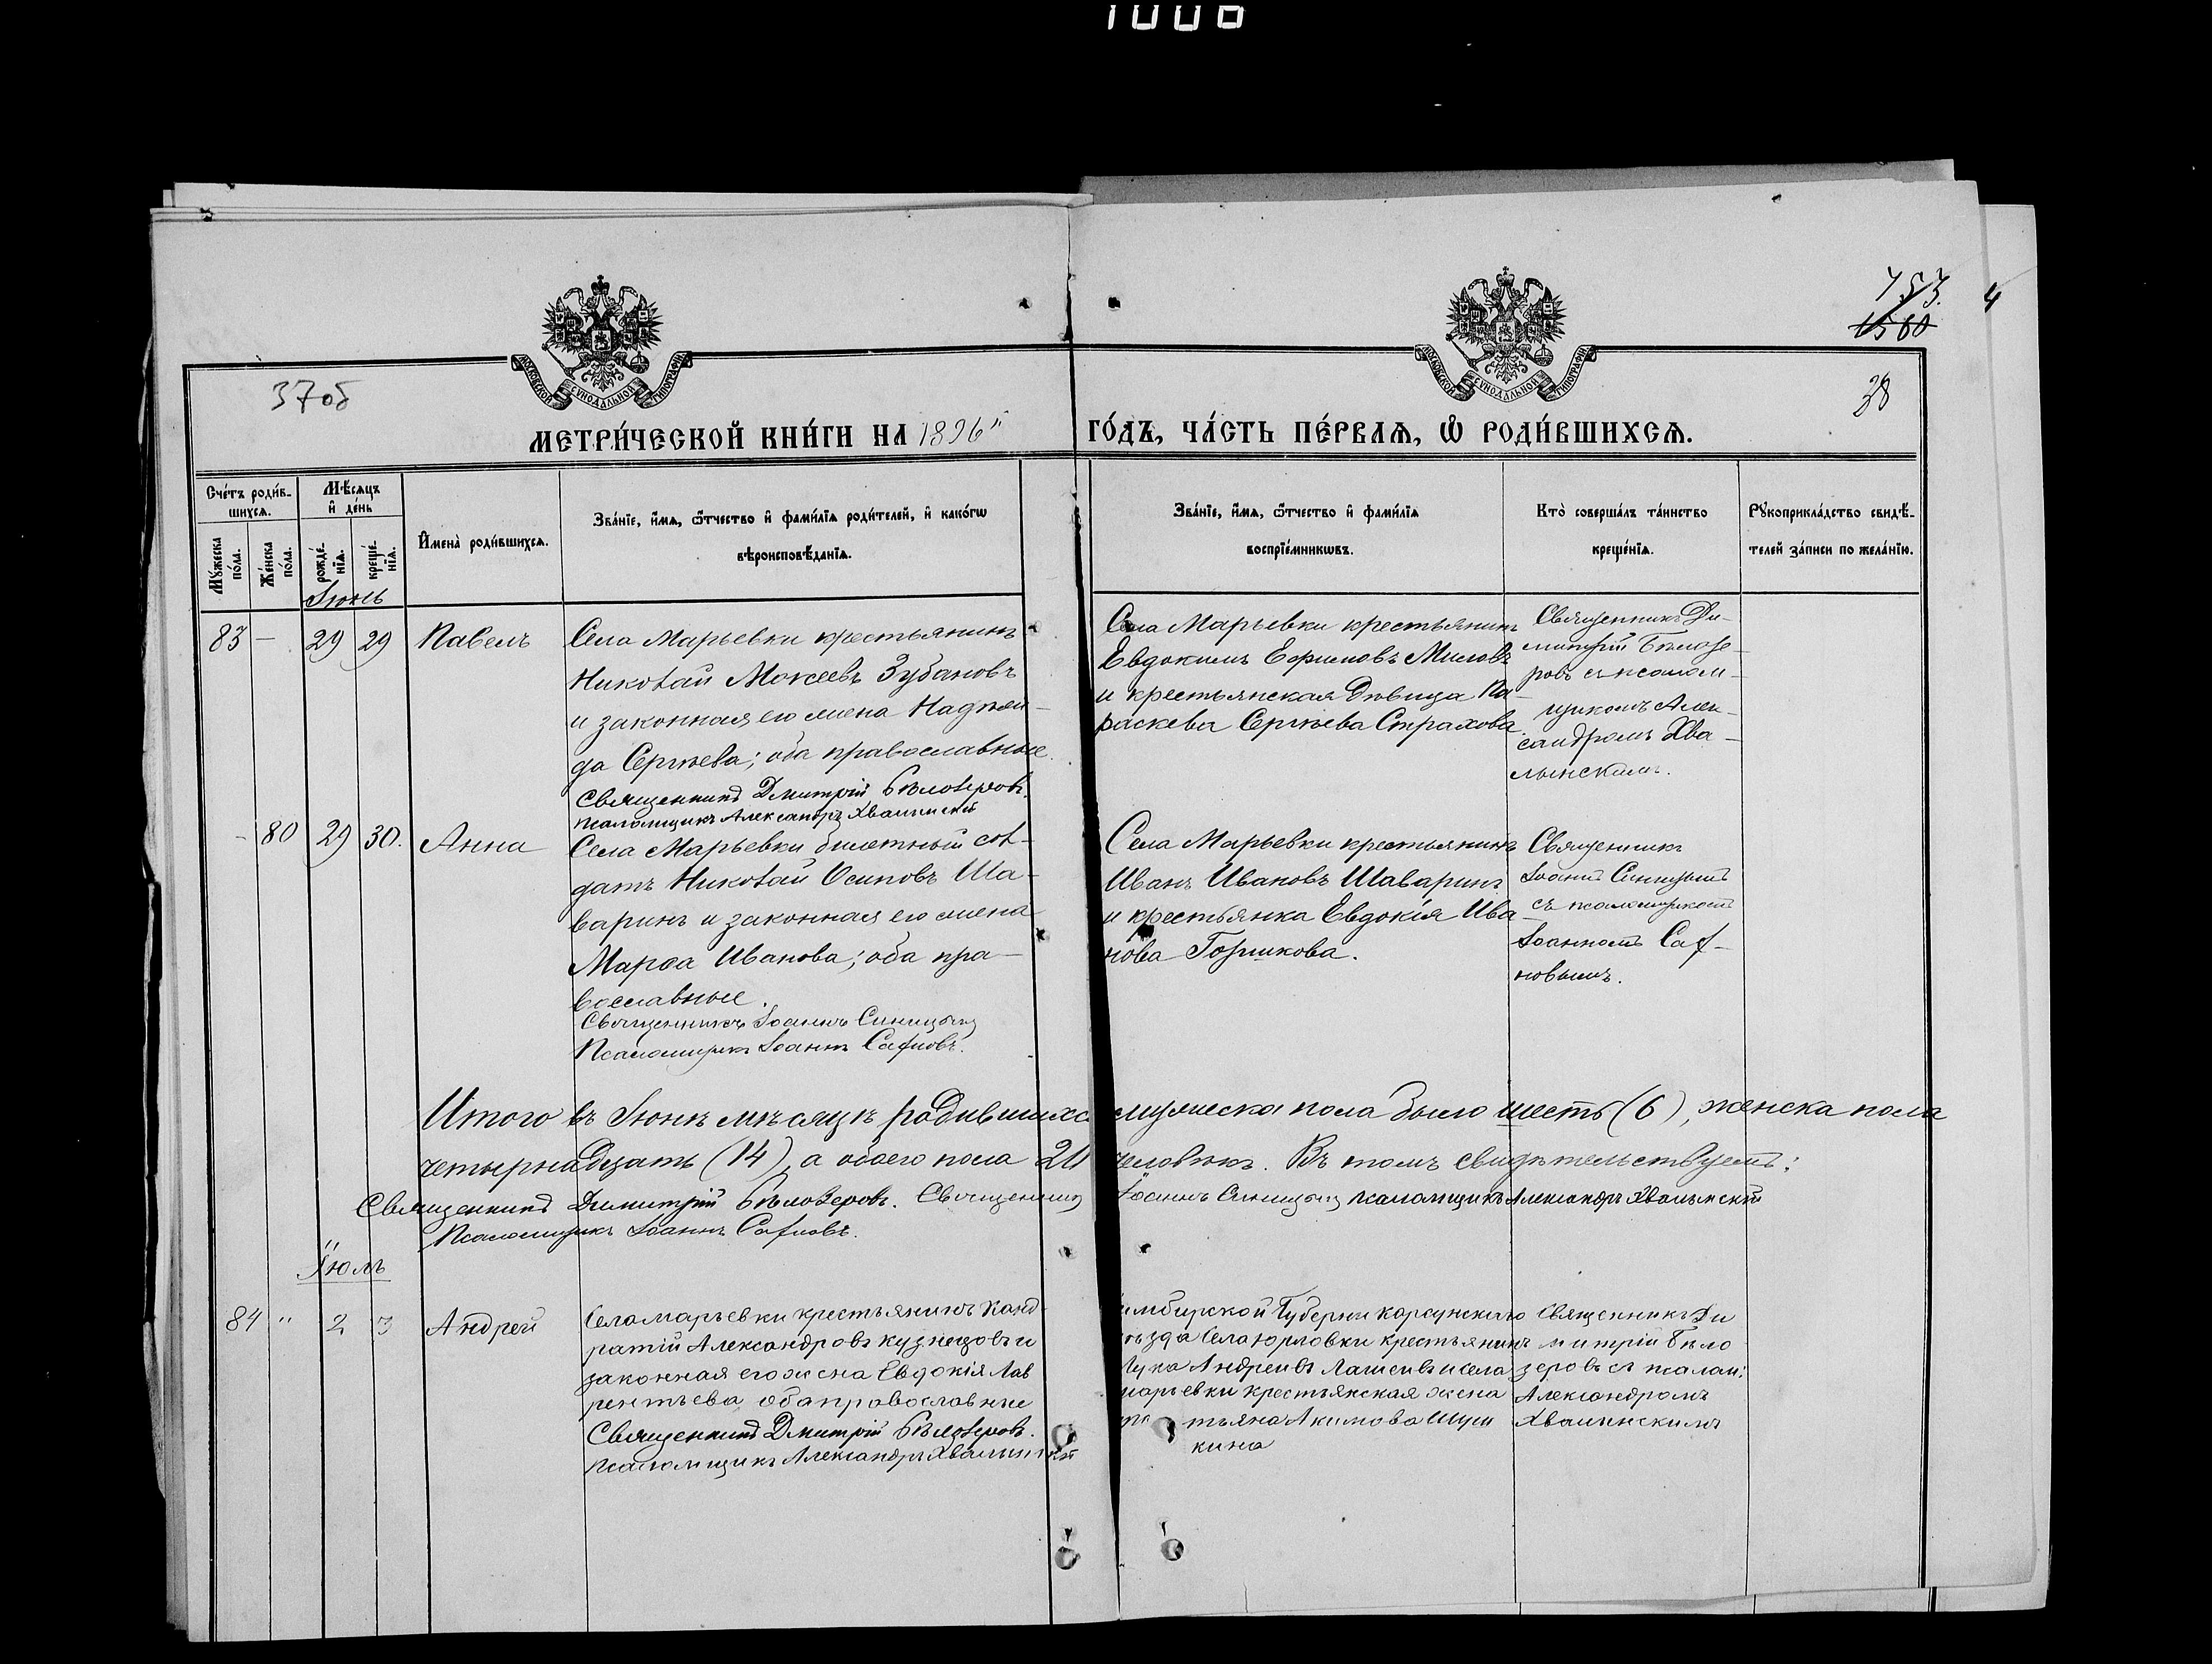 1006
753.
1560
4
37об
38
МОСКОВСКОЙ СѴНОДАЛЬНОЙ ТИПОГРАФІИ
МОСКОВСКОЙ СѴНОДАЛЬНОЙ ТИПОГРАФІИ
МЕТРИ́ЧЕСКОЙ КНИ́ГИ НА 1896 ГО́ДЪ, ЧА́СТЬ ПЕ́РВАѦ, Ѡ҆ РОДИ́ВШИХСѦ.
Сче́тъ роди́в-
шихсѧ.
Мꙋ́жеска по́ла.
Же́нска по́ла.
Мѣ́сѧцъ и҆ де́нь
рожде́-
нїѧ.
креще́-
нїѧ.
И҆мена̀ роди́вшихсѧ.
Зва́нїе, и҆́мѧ, ѻ҆́тчество и҆ фами́лїѧ роди́телей, и҆ како́гѡ
вѣроисповѣ́данїѧ.
Зва́нїе, и҆́мѧ, ѻ҆́тчество и҆ фами́лїѧ
воспрїе́мникѡвъ.
Кто̀ соверша́лъ та́инство
креще́нїѧ.
Рꙋкоприкла́дство свидѣ́-
телей за́писи по жела́нїю.
Іюнь
83 — 29 29 Павелъ
Села Марьевки крестьянинъ
Николай Мокеевъ Зубановъ
и законная его жена Надѣж-
да Сергѣева; оба православные.
Священникъ Дмитрій Бѣлозеровъ.
Псаломщикъ Александръ Хвалынскій
Села Марьевки крестьянинъ
Евдокимъ Ефимовъ Миловъ
и крестьянская дѣвица Па-
раскева Сергѣева Страхова.
Священникъ Ди-
митрій Бѣлозе-
ровъ съ псалом-
щикомъ Алек-
сандромъ Хва-
лынскимъ.
- 80 29 30. Анна
Села Марьевки билетный сол-
датъ Николай Осиповъ Ша-
варинъ и законная его жена
Марѳа Иванова; оба пра-
вославные.
Священникъ Іоаннъ Синицынъ
Псаломщикъ Іоаннъ Сафновъ.
Села Марьевки крестьянинъ
Иванъ Ивановъ Шаваринъ
и крестьянка Евдокія Ива-
нова Горшкова.
Священникъ
Іоаннъ Синицынъ
съ псаломщикомъ
Іоанномъ Саф-
новымъ.
Итого въ Іюнѣ мѣсяцѣ родившихся мужеска пола было шесть (6), женска пола
четырнадцать (14), а обоего пола 20 человѣкъ. Въ томъ свидѣтельствуемъ:
Священникъ Димитрій Бѣлозеровъ. Священникъ Іоаннъ Синицынъ Псаломщикъ Александръ Хвалынскій
Псаломщикъ Іоаннъ Сафновъ.
Іюль
84 " 2 3 Андрей
Села марьевки крестьянинъ Канд-
ратій Александровъ кузнецовъ и
законная его жена Евдокія Лав
рентьева оба православные
Священникъ Дмитрій Бѣлозеровъ.
Псаломщикъ Александръ Хвалынскій
имбирской Губерни Карсунскаго
ѣзда Села юрловки крестьянинъ
Лука Андреивъ Лашеивъ и села
марьевки крестьянская жена
тьяна Акимова Шуш
кина
Священникъ Ди
митрій Бѣло
зеровъ съ псалом:
Александромъ
Хвалынскимъ